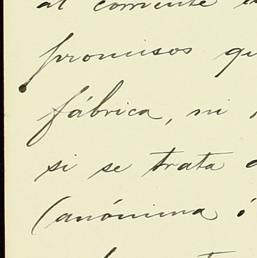 al corriente
promisos qu
fábrica, ni
si se trata
(anónima ó